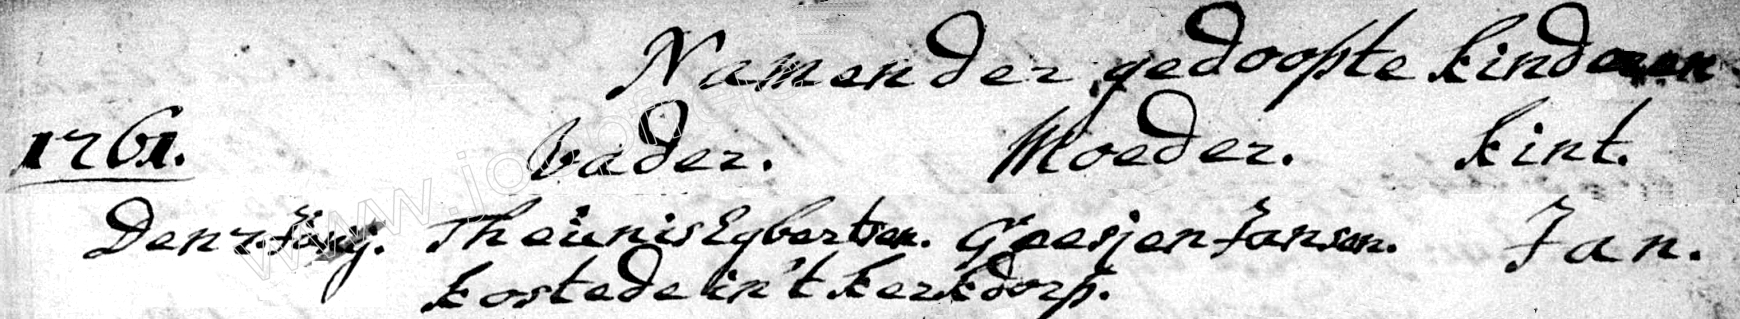 Namen der gedoopte kinderen
1761. Vader. Moeder. kint.
Den Theunis Egbertsen. Geesjen Jansen. Jan.
kostede in't kerkdorp.